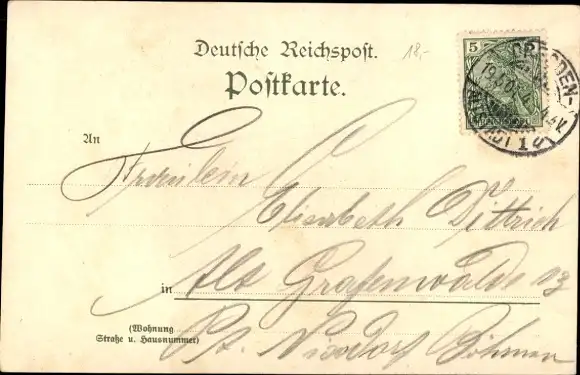 Deutsche Reichspost.
18,-
Postkarte.
5
DRESDEN-
ALTSTADT 10
An
Fräulein
Elisabeth Dittrich
in Alt Grafenwalde 13
(Wohnung
Straße u. Hausnummer)
Pt. Nixdorf Böhmen